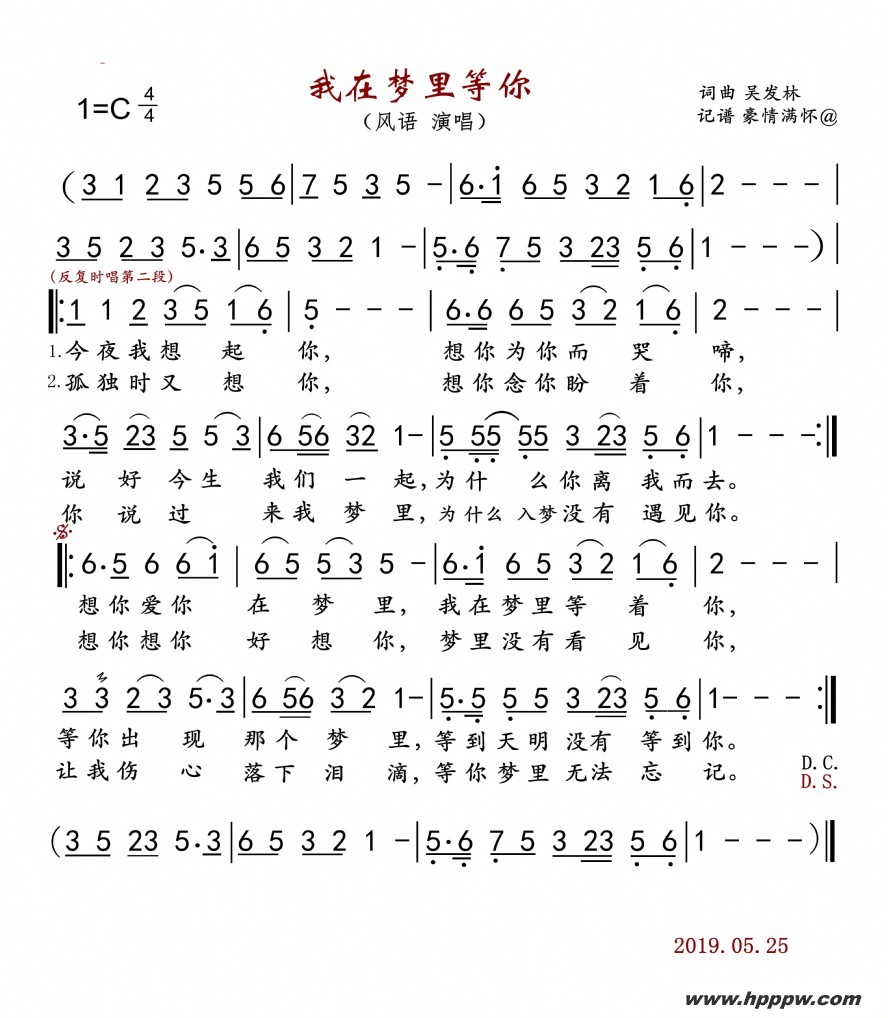 我在梦里等你
1=C 4/4
（风语 演唱）
词曲 吴发林
记谱 豪情满怀@
(3 1 2 3 5 5 6|7 5 3 5 -|6·i 6 5 3 2 1 6|2 - - -|
3 5 2 3 5·3|6 5 3 2 1 -|5·6 7 5 3 23 5·6|1 - - -)|
(反复时唱第二段)
‖:1 1 2 3 5 1 6|5 - - -|6·6 6 5 3 2 1 6|2 - - -|
1.今夜我想 起 你， 想你为你而 哭 啼，
2.孤独时又 想 你， 想你念你盼 着 你，
3·5 23 5 5 3|6 56 32 1-|5 55 55 3 23 5 6|1 - - -:‖
说 好 今生 我们 一 起，为什 么你离 我而去。
你 说 过 来我 梦 里，为什么 入梦没有 遇见你。
‖:6·5 6 6 i|6 5 5 3 5 -|6·i 6 5 3 2 1 6|2 - - -|
想你爱你 在 梦 里， 我在梦里等 着 你，
想你想你 好 想 你， 梦里没有看 见 你，
3 3 2 3 5·3|6 56 3 2 1-|5·5 5 5 3 23 5 6|1- - -:‖
等你出 现 那个 梦 里，等到天明没有 等到你。
让我伤 心 落下 泪 滴，等你梦里无法 忘 记。
D.C.
D.S.
(3 5 23 5·3|6 5 3 2 1 -|5·6 7 5 3 23 5·6|1 - - -)‖
2019.05.25
www.hpppw.com